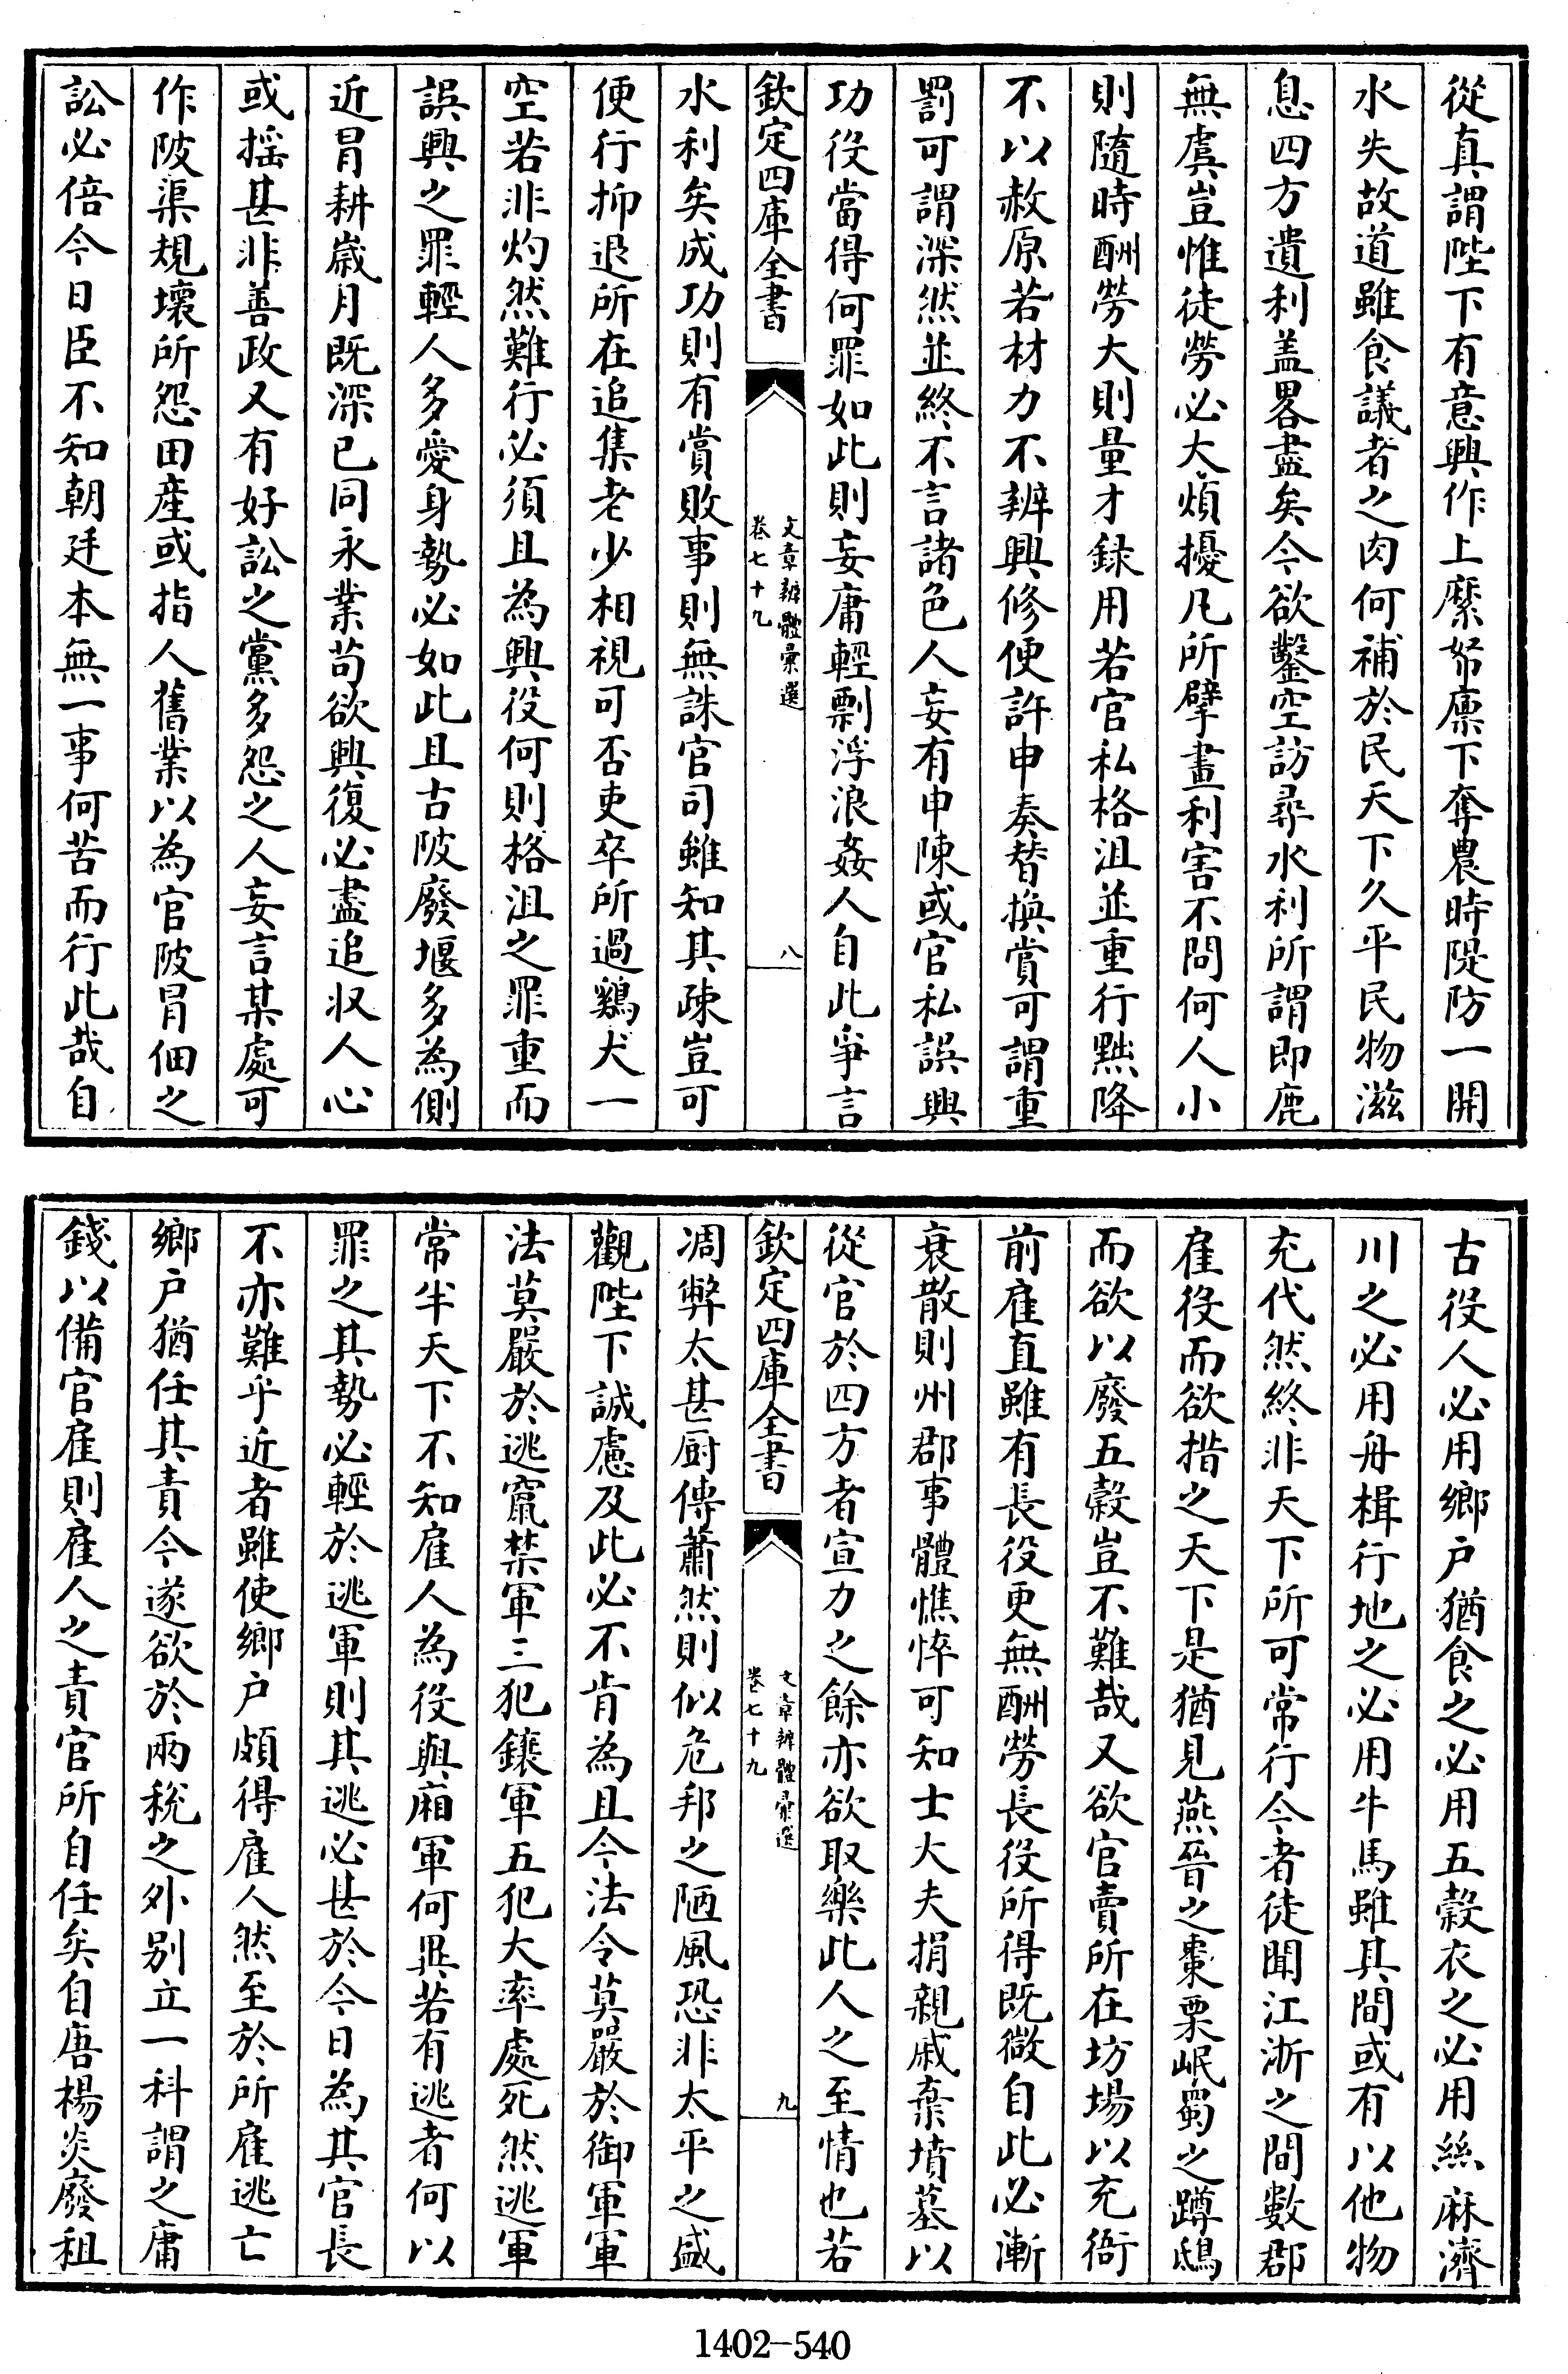 從真謂陛下有意興作上糜帑廩下奪農時隄防一開
水失故道雖食議者之肉何補於民天下久平民物滋
息四方遺利盖畧盡矣今欲鑿空訪尋水利所謂即鹿
無虞豈惟徒勞必大煩擾凡所擘畫利害不問何人小
則隨時酬勞大則量才録用若官私格沮並重行黜降
不以赦原若材力不辨興修便許申奏替換賞可謂重
罰可謂深然並終不言諸色人妄有申陳或官私誤興
功役當得何罪如此則妄庸輕剽浮浪姦人自此爭言
欽定四庫全書
文章辨體彚選
卷七十九
八
水利矣成功則有賞敗事則無誅官司雖知其疎豈可
便行抑退所在追集老少相視可否吏卒所過鷄犬一
空若非灼然難行必須且為興役何則格沮之罪重而
誤興之罪輕人多愛身勢必如此且古陂廢堰多為側
近冒耕歲月既深已同永業苟欲興復必盡追収人心
或揺甚非善政又有好訟之黨多怨之人妄言某處可
作陂渠規壞所怨田産或指人舊業以為官陂冒佃之
訟必倍今日臣不知朝廷本無一事何苦而行此哉自
古役人必用鄉户猶食之必用五穀衣之必用絲麻濟
川之必用舟楫行地之必用牛馬雖其間或有以他物
充代然終非天下所可常行今者徒聞江浙之間數郡
雇役而欲措之天下是猶見燕晉之棗栗岷蜀之蹲鴟
而欲以廢五穀豈不難哉又欲官賣所在坊場以充衙
前雇直雖有長役更無酬勞長役所得既微自此必漸
衰散則州郡事體憔悴可知士大夫捐親戚棄墳墓以
從官於四方者宣力之餘亦欲取樂此人之至情也若
欽定四庫全書
文章辨體彚選
卷七十九
九
凋弊太甚厨傳蕭然則似危邦之陋風恐非太平之盛
觀陛下誠慮及此必不肯為且今法令莫嚴於御軍軍
法莫嚴於逃竄禁軍三犯鑲軍五犯大率處死然逃軍
常半天下不知雇人為役與廂軍何異若有逃者何以
罪之其勢必輕於逃軍則其逃必甚於今日為其官長
不亦難乎近者雖使鄉户頗得雇人然至於所雇逃亡
鄉户猶任其責今遂欲於兩税之外别立一科謂之庸
錢以備官雇則雇人之責官所自任矣自唐楊炎廢租
1402-540